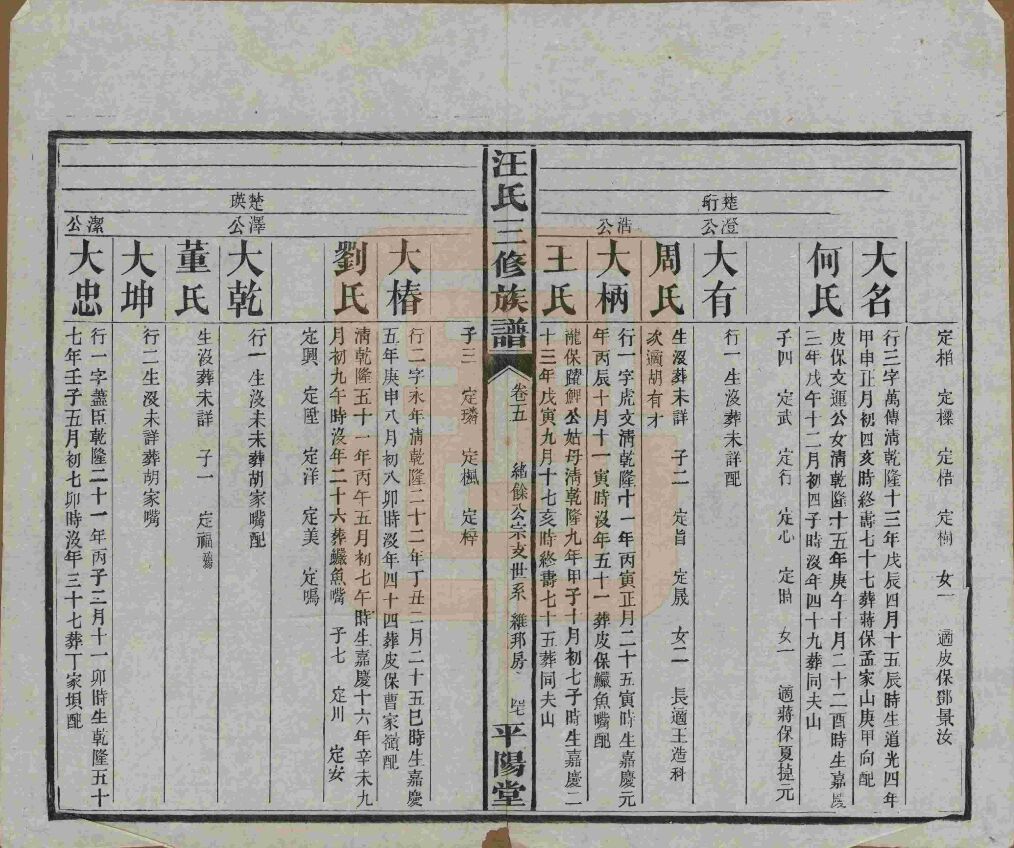 定梢　定樑　定梧　定樹　女一　適皮保鄧景汝
楚珩
澄公
大名
行三字萬傳淸乾隆十三年戊辰四月十五辰時生道光四年
甲申正月初四亥時終壽七十七葬蔣保孟家山庚甲向配
何氏
皮保文運公女淸乾隆十五年庚午十月二十二酉時生嘉慶
三年戊午十二月初四子時沒年四十九葬同夫山
子四　定武　定行　定心　定時　女一　適蔣保夏㨗元
大有
行一生沒葬未詳配
周氏
生沒葬未詳　子二　定旨　定晟　女二　長適王造科
次適胡有才
浩公
大柄
行一字虎文淸乾隆十一年丙寅正月二十五寅時生嘉慶元
年丙辰十月十一寅時沒年五十一葬皮保鱺魚嘴配
王氏
龍保躍鯉公姑母淸乾隆九年甲子十月初七子時生嘉慶二
十三年戊寅九月十七亥時終壽七十五葬同夫山
汪氏三修族譜
卷五
緒餘公宗支世系
維邦房
平陽堂
子三　定璘　定楓　定梓
楚瑛
澤公
大椿
行二字永年淸乾隆二十二年丁丑二月二十五巳時生嘉慶
五年庚申八月初八卯時沒年四十四葬皮保曹家嶺配
劉氏
淸乾隆五十一年丙午五月初七午時生嘉慶十六年辛未九
月初九午時沒年二十六葬鱺魚嘴　子七　定川　定安
定興　定陞　定洋　定美　定鳴
大乾
行一生沒未未葬胡家嘴配
董氏
生沒葬未詳　子一　定福
大坤
行二生沒未詳葬胡家嘴
潔公
大忠
行一字藎臣乾隆二十一年丙子三月十一卯時生乾隆五十
七年壬子五月初七卯時沒年三十七葬丁家垻配